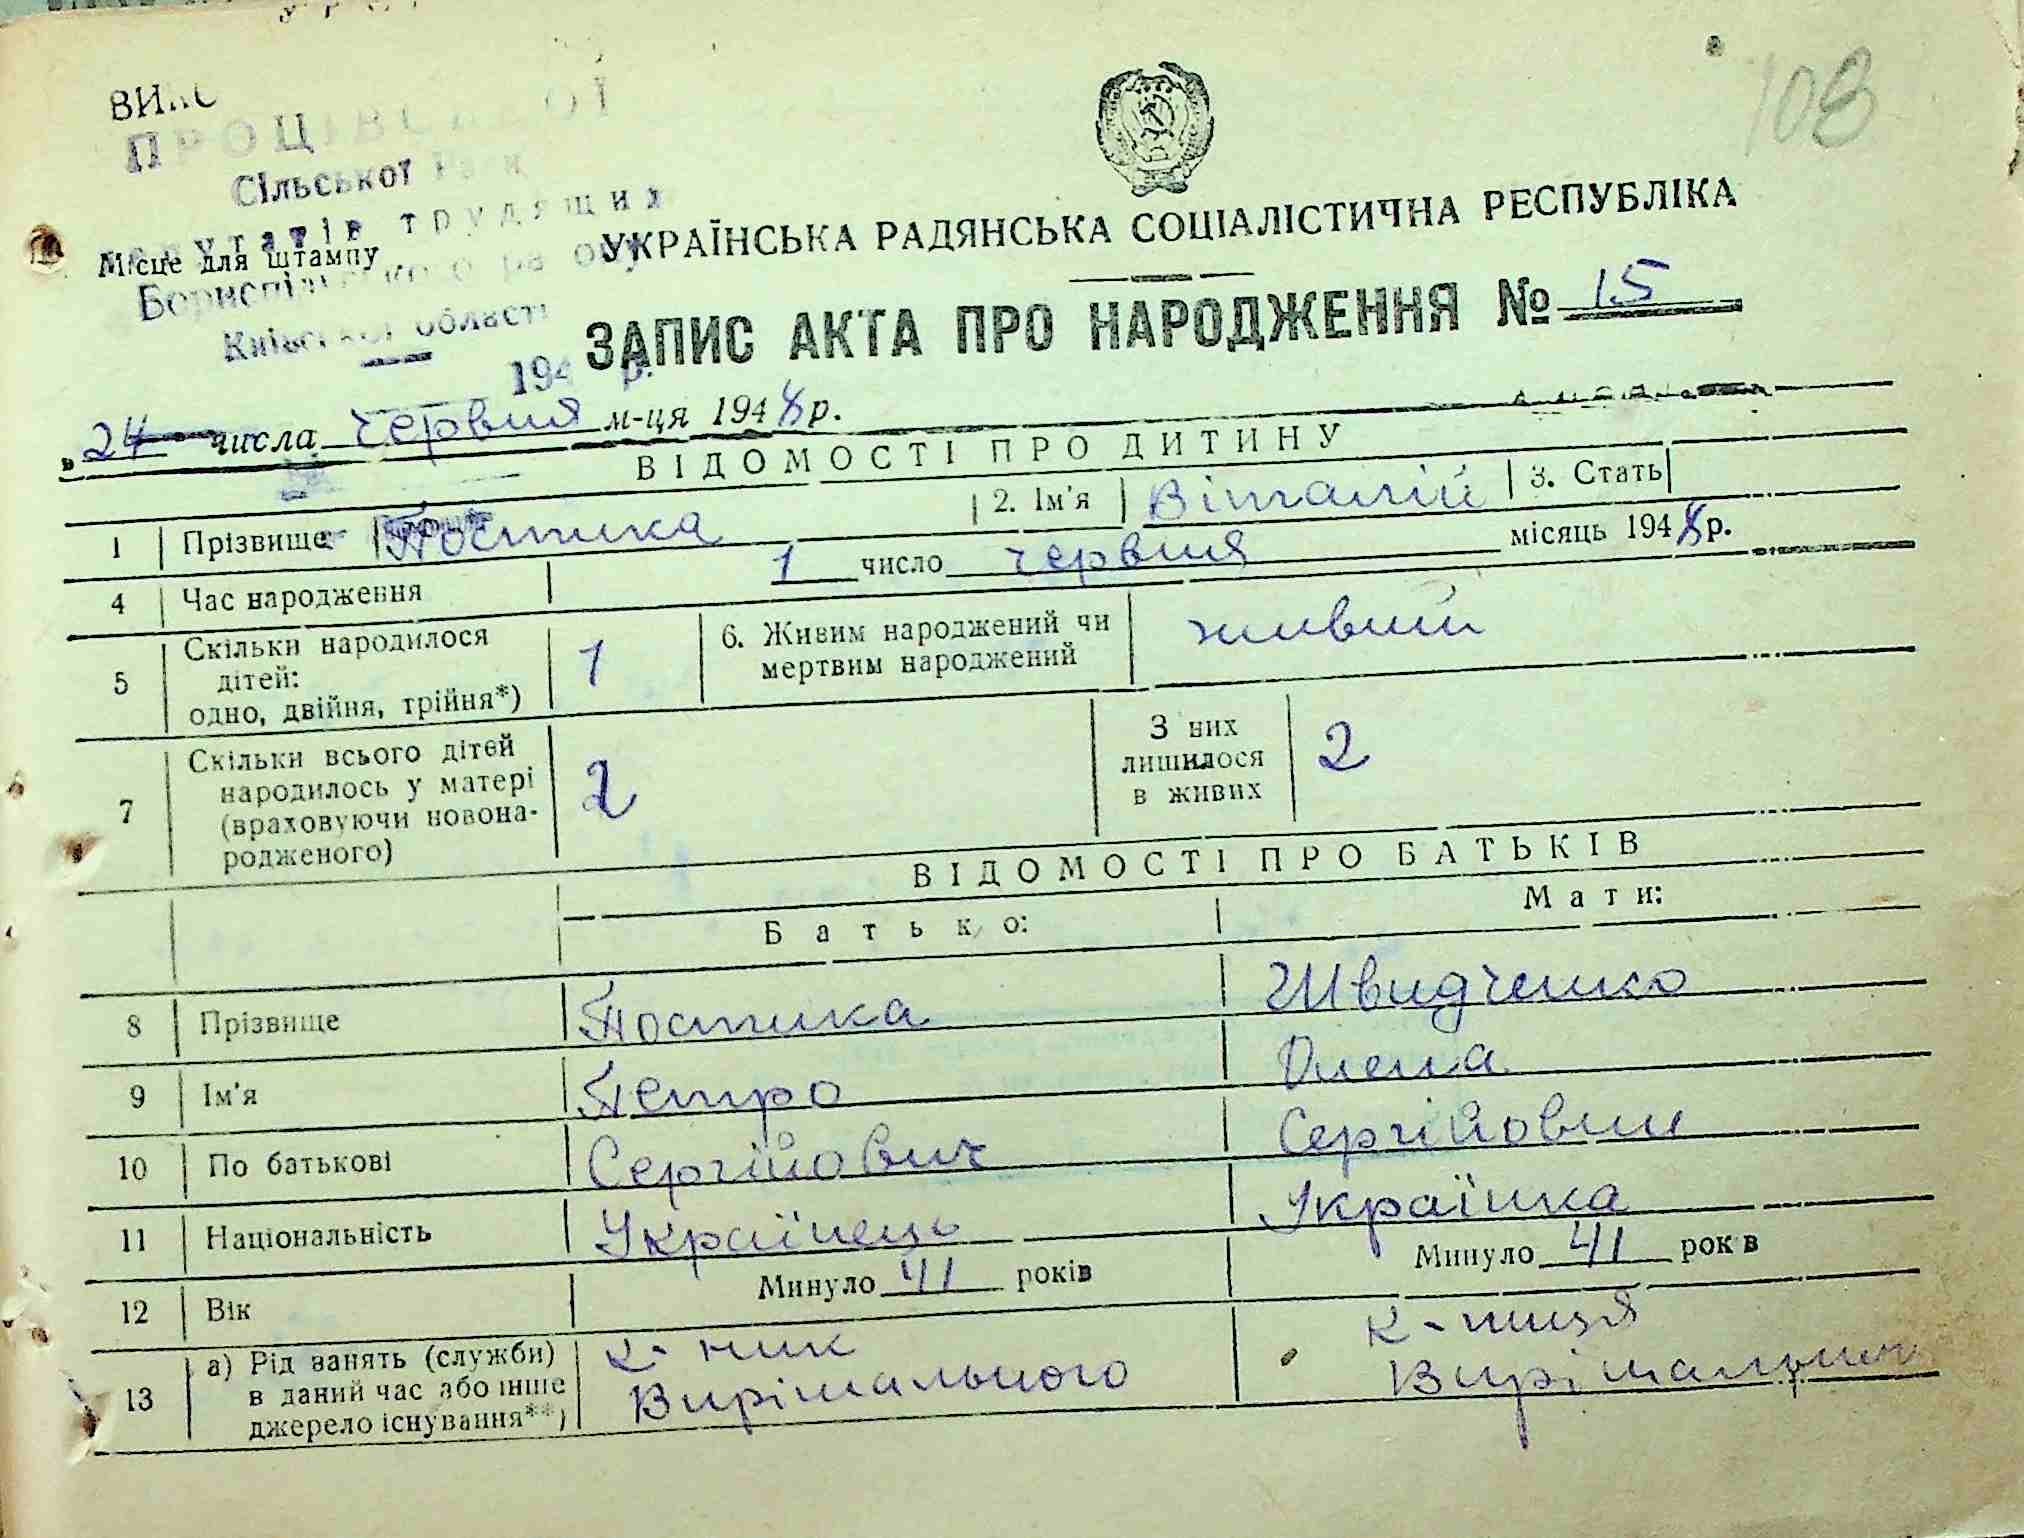 108
ПРОЦІВСЬКОЇ
Сільської Ради
депутатів трудящих
Місце для штампу
Бориспільського району
Київської області
194 р.
УКРАЇНСЬКА РАДЯНСЬКА СОЦІАЛІСТИЧНА РЕСПУБЛІКА
ЗАПИС АКТА ПРО НАРОДЖЕННЯ № 15
24 числа червня м-ця 1948 р.
ВІДОМОСТІ ПРО ДИТИНУ
1 Прізвище Постика 2. Ім'я Віталій 3. Стать
4 Час народження 1 число червня місяць 1948 р.
5 Скільки народилося дітей: одно, двійня, трійня*) 1 6. Живим народжений чи мертвим народжений живий
7 Скільки всього дітей народилось у матері (враховуючи новонародженого) 2 З них лишилося в живих 2
ВІДОМОСТІ ПРО БАТЬКІВ
Батько: Мати:
8 Прізвище Постика Швидченко
9 Ім'я Петро Олена
10 По батькові Сергійович Сергійовни
11 Національність Українець Українка
12 Вік Минуло 41 років Минуло 41 рок в
13 а) Рід занять (служби) в даний час або інше джерело існування**) к-ник Вирішального к-ниця